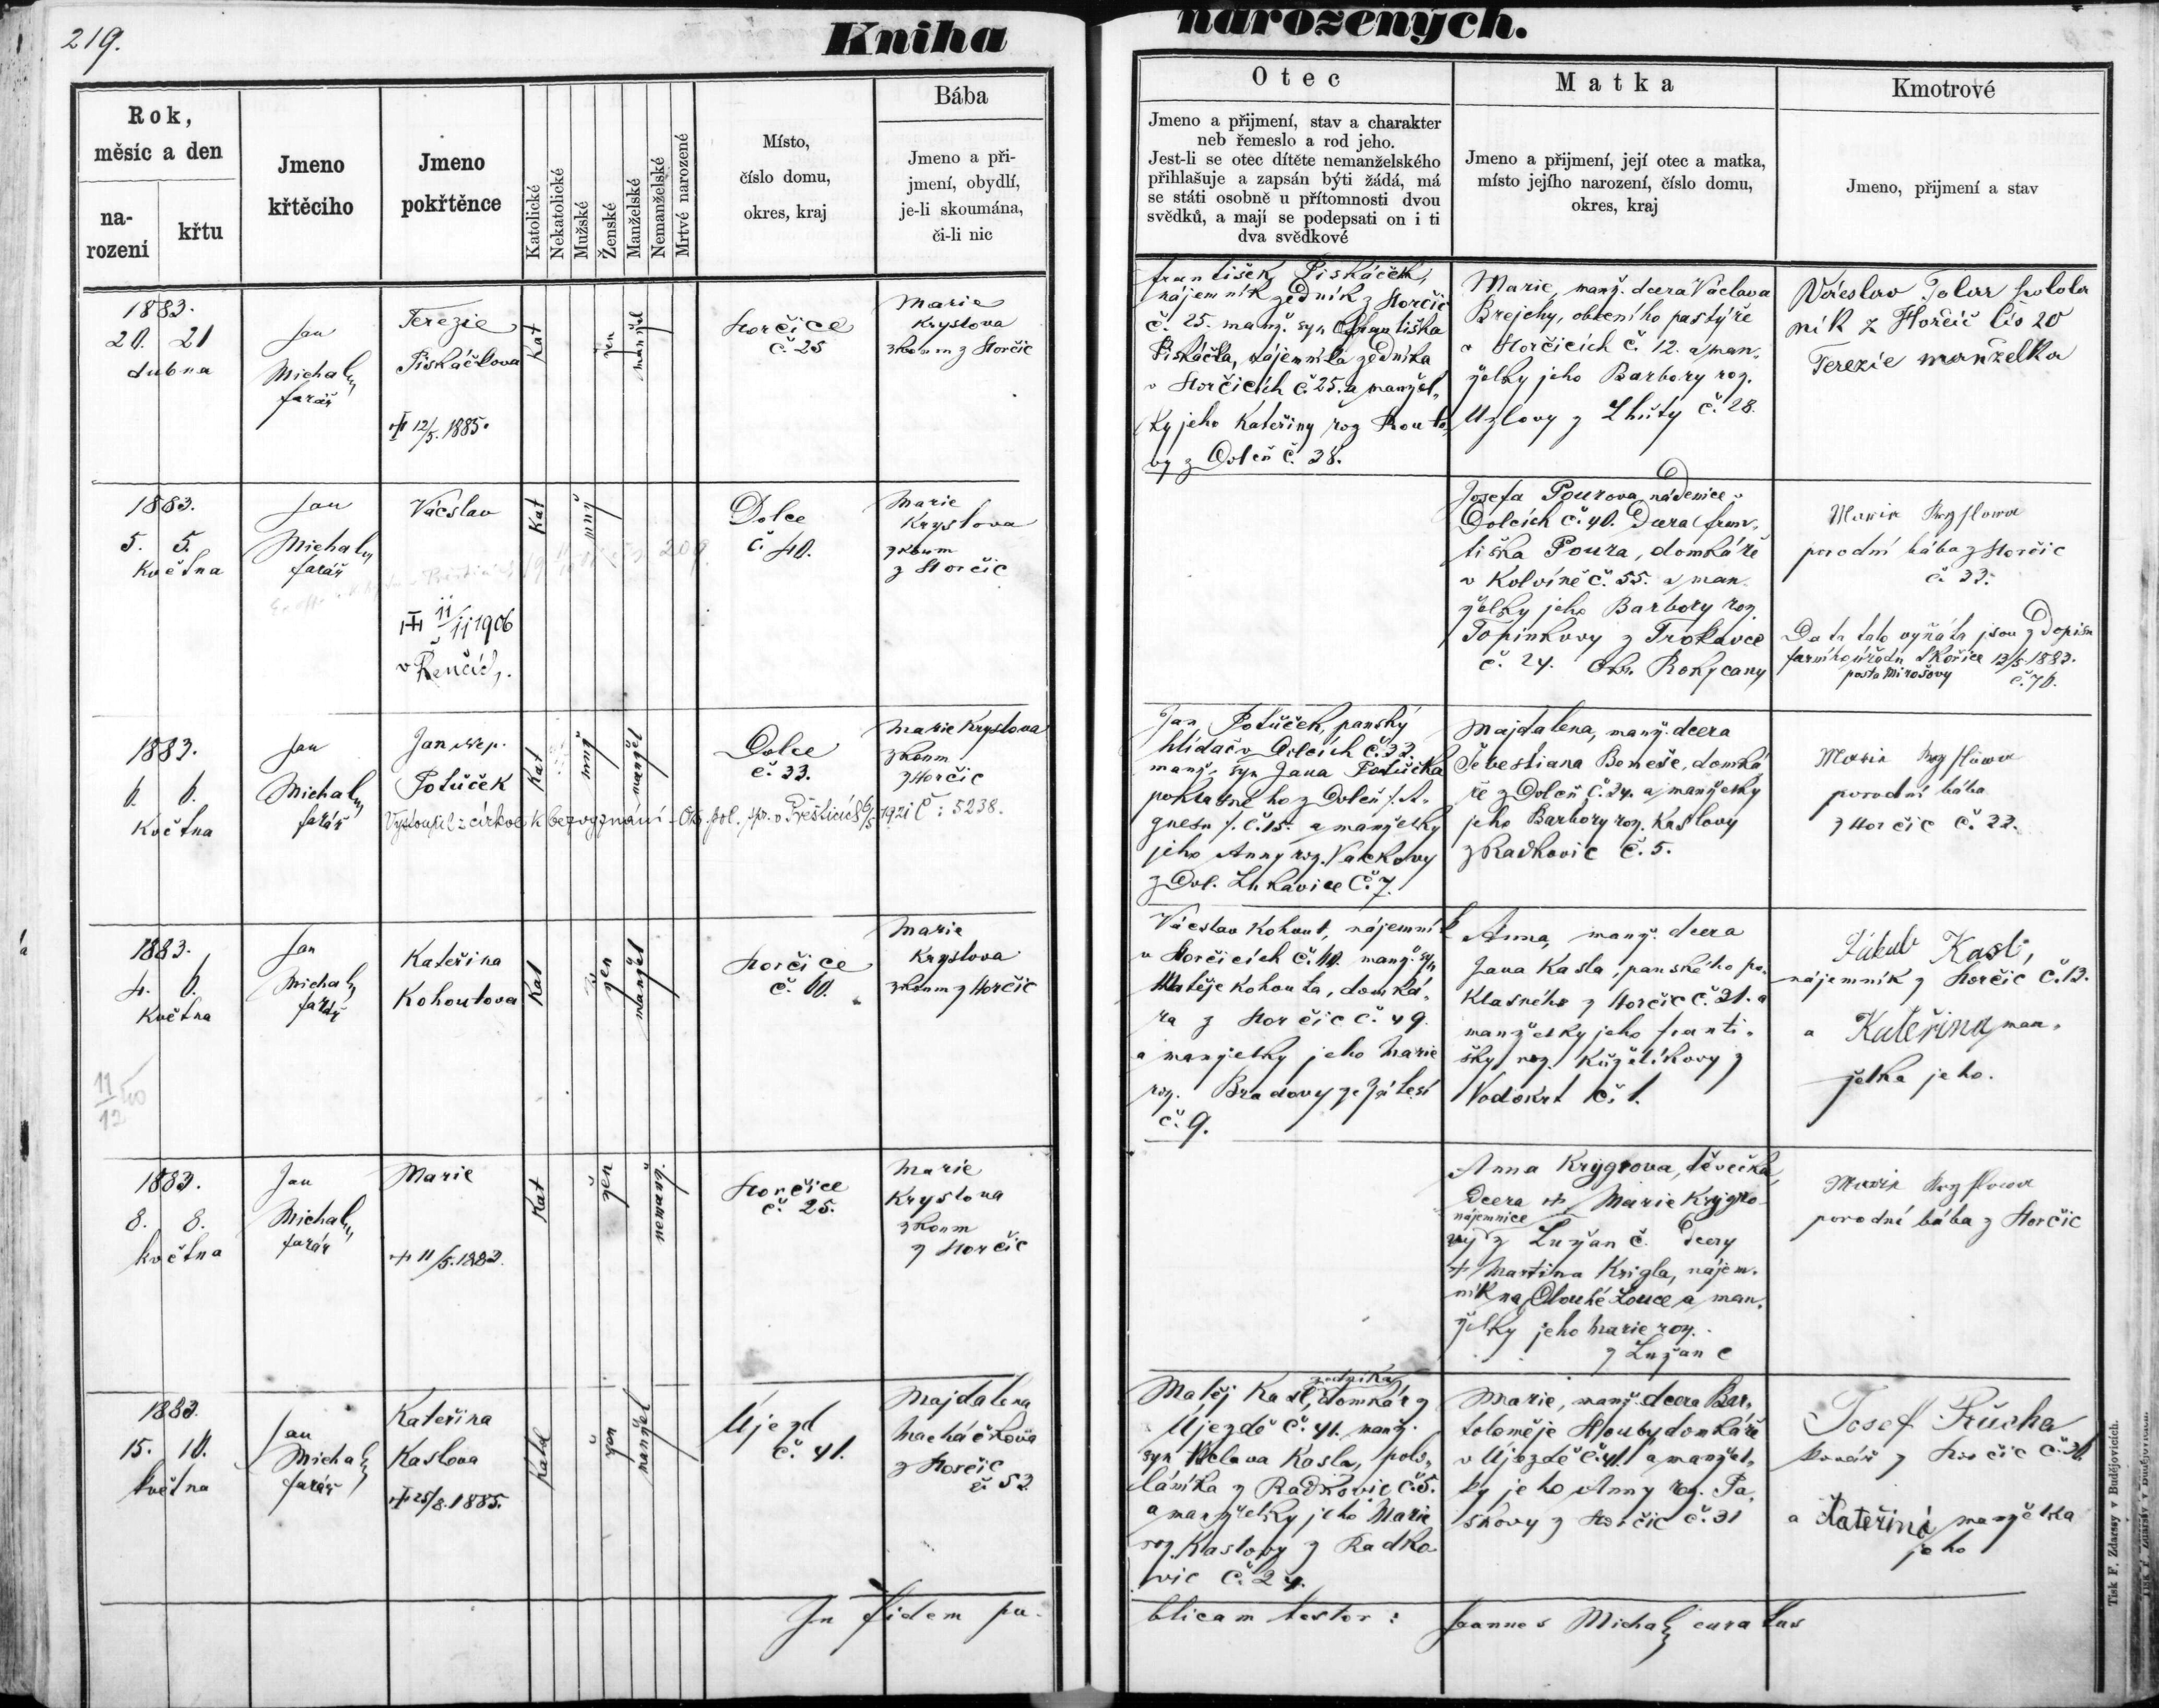 219.
Kniha
narozených.
Rok,
měsíc a den
na-
rození
křtu
Jmeno
křtěcího
Jmeno
pokřtěnce
Katolické
Nekatolické
Mužské
Ženské
Manželské
Nemanželské
Mrtvé narozené
Místo,
číslo domu,
okres, kraj
Bába
Jmeno a pří-
jmení, obydlí,
je-li skoumána,
či-li nic
Otec
Jmeno a přijmení, stav a charakter
neb řemeslo a rod jeho.
Jest-li se otec dítěte nemanželského
přihlašuje a zapsán býti žádá, má
se státi osobně u přítomnosti dvou
svědků, a mají se podepsati on i ti
dva svědkové
Matka
Jmeno a přijmení, její otec a matka,
místo jejího narození, číslo domu,
okres, kraj
Kmotrové
Jmeno, přijmení a stav
1883.
20. 21
dubna
Jan
Michal
farář
Terezie
Piskáčkova
12/5. 1885.
Kat
žen
manžel
Horčice
č. 25
Marie
Kryslova
zkoum z Horčic
František Piskáček,
nájemník zedník z Horčic
č. 25. manž. syn Františka
Piskáčka, nájemníka zedníka
v Horčicích č. 25. a manžel„
ky jeho Kateřiny roz
vy z Dolců č. 38.
Marie, manž. dcera Václava
Brejchy, obecního pastýře
v Horčicích č. 12. a man„
želky jeho Barbory roz.
Uzlovy z Lhůty č. 28.
Václav Tolar
ník z Horčic čís 20
Terezie manželka
1883.
5. 5.
Května
Jan
Michal
farář
Václav
11/11 1906
v Řenčích.
Kat
muž
Dolce
č. 40.
Marie
Kryslova
zkoum
z Horčic
Josefa Pourova, nádenice v
Dolcích č. 40. Dcera Fran„
tiška Poura, domkáře
v Kolvíně č. 55. a man
želky jeho Barbory roz.
Topinkovy z Trokavce
č. 24. Okr. Rokycany
Marie Kryslowa
porodní bába z Horčic
č. 33.
Data tato vyňáta jsou z Dopisu
farního úřadu Skořice 13/5 1883.
pošta Mirošovy
č. 76.
1883.
6. 6.
Května
Jan
Michal
farář
Jan Nep.
Potůček
Kat
muž
manžel
Vystoupil z církve k bezvyznání - Ok. pol. spr. v Přešticích 6/5 1921 č: 5238.
Dolce
č. 33.
Marie Kryslova
zkoum
z Horčic
Jan Potůček, panský
hlídač v Dolcích č. 33.
manž. syn Jana Potůčka
poklasného z Dolců
č. 15. a manželky
jeho Anny roz. Vackovy
z Dol. Lukavice č. 7.
Majdalena, manž. dcera
Šebestiana Beneše, domká
ře z Dolců č. 24. a manželky
jeho Barbory roz. Kaslovy
z Radkovic č. 5.
Marie Kryslowa
porodní bába
z Horčic č. 33.
1883.
4. 6.
Května
11/12 50
Jan
Michal
farář
Kateřina
Kohoutova
Kat
žen
manžel
Horčice
č. 60.
Marie
Kryslova
zkoum z Horčic
Václav Kohout, nájemník
v Horčicích č. 60. manž. syn
Matěje Kohouta, domká„
ra z Horčic č. 49.
a manželky jeho Marie
roz. Bradovy ze Zálesí
č. 9.
Anna, manž. dcera
Jana Kasla, panského po„
klasného z Horčic č. 31. a
manželky jeho Franti„
šky roz. Kuželíkovy z
Vodokrt č. 1.
Jakub Kasl,
nájemník z Horčic č. 13.
a Kateřina man„
želka jeho.
1883.
8. 8.
května
Jan
Michal
farář
Marie
11/5. 1883.
Kat
žen
nemanž.
Horčice
č. 25.
Marie
Kryslova
zkoum
z Horčic
Anna Krýgrova, děvečka,
Dcera † Marie Krýgro
nájemnice
vy z Lužan č. dcery
† Martina Krigla, nájem„
ník na Dlouhé Louce a man„
želky jeho Marie roz.
z Lužan č
Marie Kryslowa
porodní bába z Horčic
1883.
15. 16.
května
Jan
Michal
farář
Kateřina
Kaslova
25/8. 1885.
Katol
žen
manžel
Újezd
č. 41.
Majdalena
Macháčkova
z Horčic
č 53
zedník a
Matěj Kasl, domkář z
Újezdě č. 41. manž.
syn Václava Kasla, polo„
láníka z Radkovic č. 5.
a manželky jeho Marie
roz. Kaslovy z Radko
vic č. 24.
Marie, manž. dcera Bar„
toloměje Hlouby domkáře
v Újezdě č. 41. a manžel„
ky jeho Anny roz. Pa„
skovy z Horčic č. 31
Josef Průcha
kovář z Horčic č. 36.
a Kateřina manželka
jeho
In fidem pu-
blicam testor: Joannes Michal curatus
Tisk F. Zdarssy v Budějovicích.